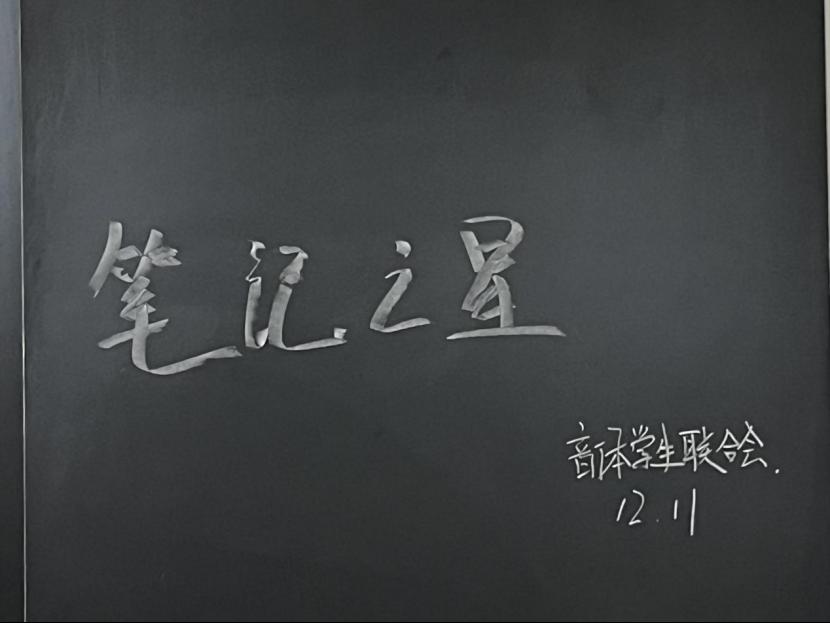 笔记之星
音体学生联合会.
12.11